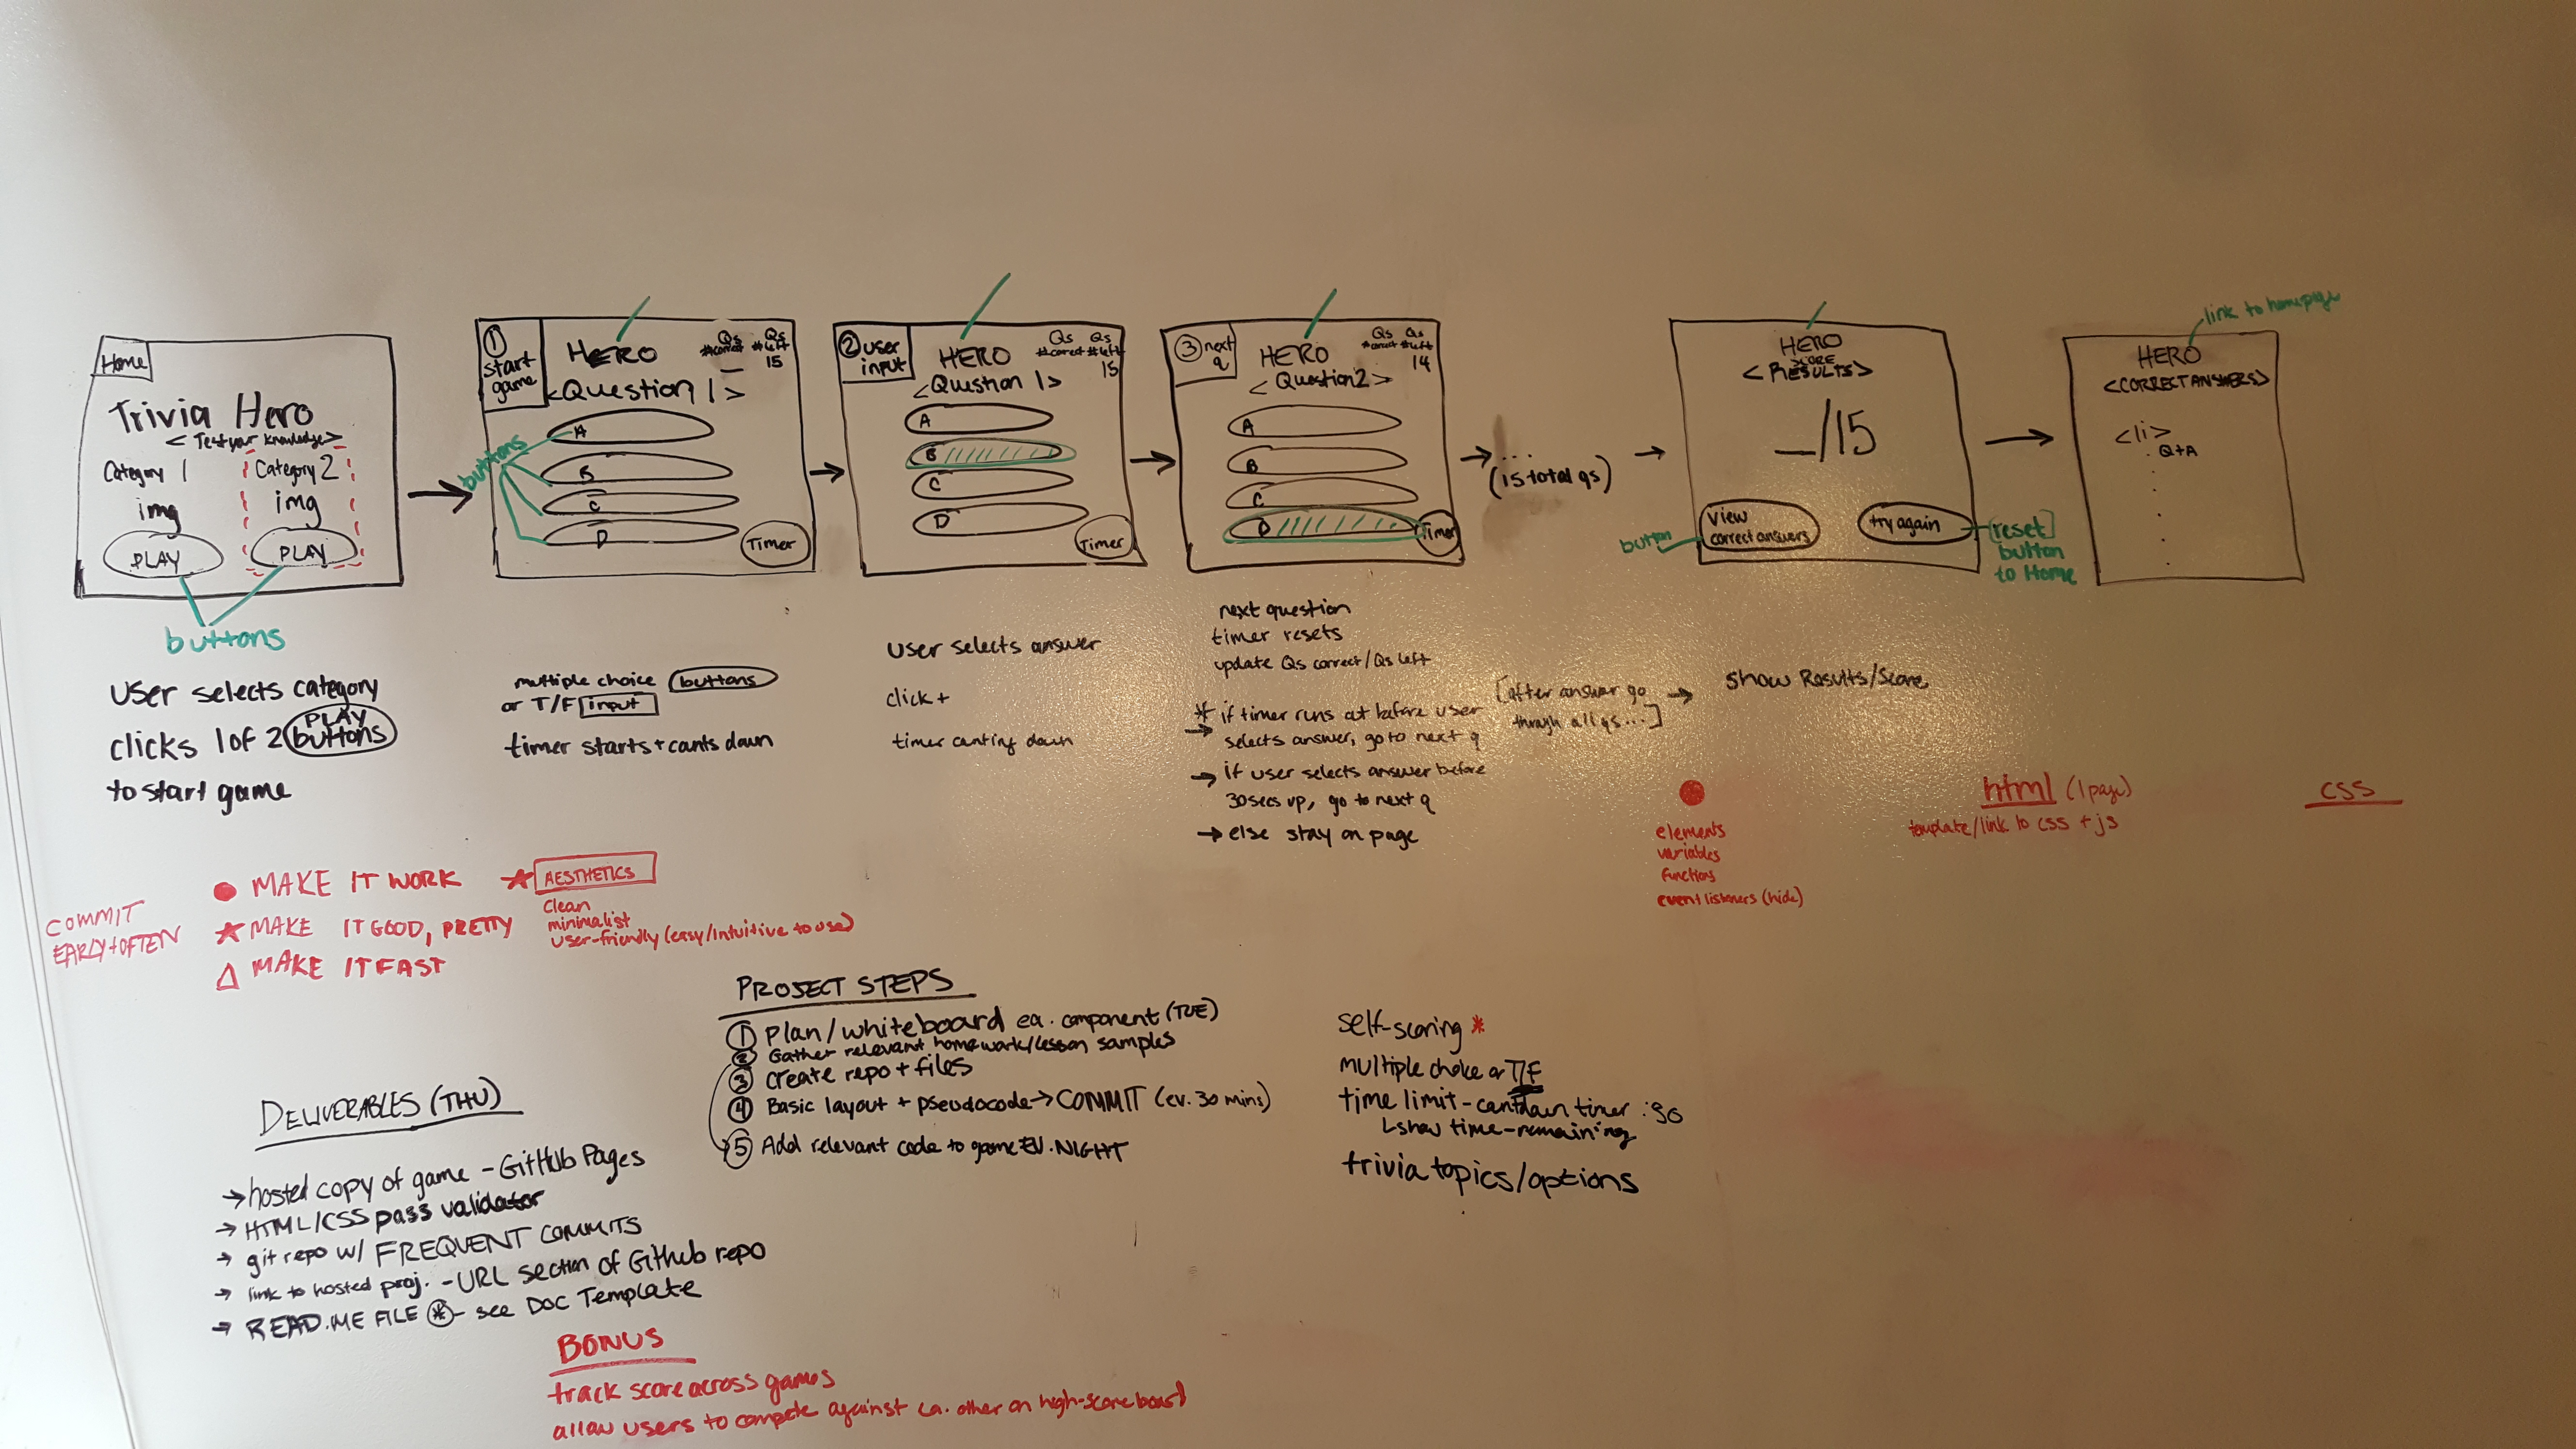 Home
Trivia Hero
< Test your knowledge >
Category 1
img
PLAY
Category 2
img
PLAY
buttons
user selects category
clicks 1 of 2 PLAY buttons
to start game
① start game
HERO
Qs #correct _
Qs #left 15
<Question 1>
buttons
A
B
C
D
Timer
multiple choice buttons
or T/F input
timer starts + counts down
② user input
HERO
Qs #correct
Qs #left 15
<Question 1>
A
B
C
D
Timer
user selects answer
click +
timer counting down
③ next q
HERO
Qs #correct
Qs #left 14
<Question 2>
A
B
C
D
Timer
next question
timer resets
update Qs correct/Qs left
* if timer runs out before user
selects answer, go to next q
→ if user selects answer before
30secs up, go to next q
→ else stay on page
→ ...
(15 total qs)
[after answer go
through all qs...]
→ show Results/Score
HERO
SCORE
<RESULTS>
_/15
view correct answers
button
try again
[reset]
button
to Home
link to homepage
HERO
<CORRECT ANSWERS>
<li>
Q+A
elements
variables
functions
event listeners (hide)
html (1 page)
template/link to css + js
css
COMMIT
EARLY + OFTEN
● MAKE IT WORK
★ MAKE IT GOOD, PRETTY
△ MAKE IT FAST
★ AESTHETICS
Clean
minimalist
user-friendly (easy/intuitive to use)
PROJECT STEPS
① Plan/whiteboard ea. component (TUE)
② Gather relevant homework/lesson samples
③ Create repo + files
④ Basic layout + pseudocode → COMMIT (ev. 30 mins)
⑤ Add relevant code to game EV. NIGHT
self-scoring *
multiple choice or T/F
time limit - countdown timer :30
show time-remaining
trivia topics/options
DELIVERABLES (THU)
→ hosted copy of game - GitHub Pages
→ HTML/CSS pass validator
→ git repo w/ FREQUENT COMMITS
→ link to hosted proj. - URL section of Github repo
→ READ.ME FILE * - see Doc Template
BONUS
track score across games
allow users to compete against ea. other on high-score board